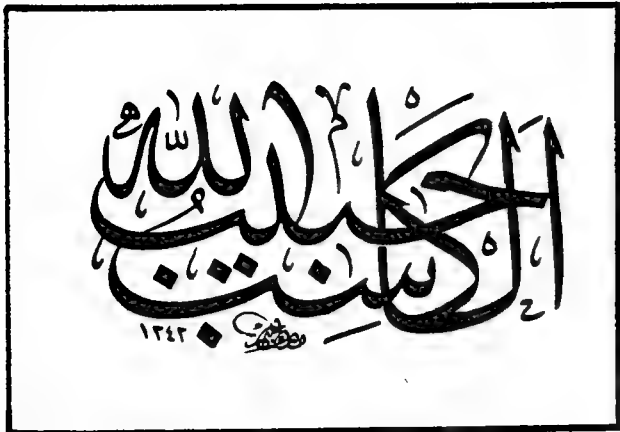 الكاسب حبيب الله
١٢٤٢